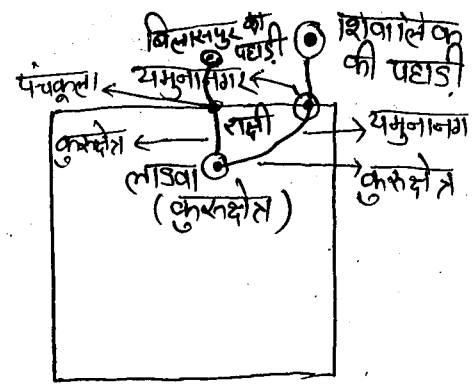 बिलासपुर की
पहाड़ी
शिवालिक
की पहाड़ी
पंचकूला
यमुनानगर
राक्षी
कुरुक्षेत्र
यमुनानग
लाडवा
कुरुक्षेत्र
(कुरुक्षेत्र)